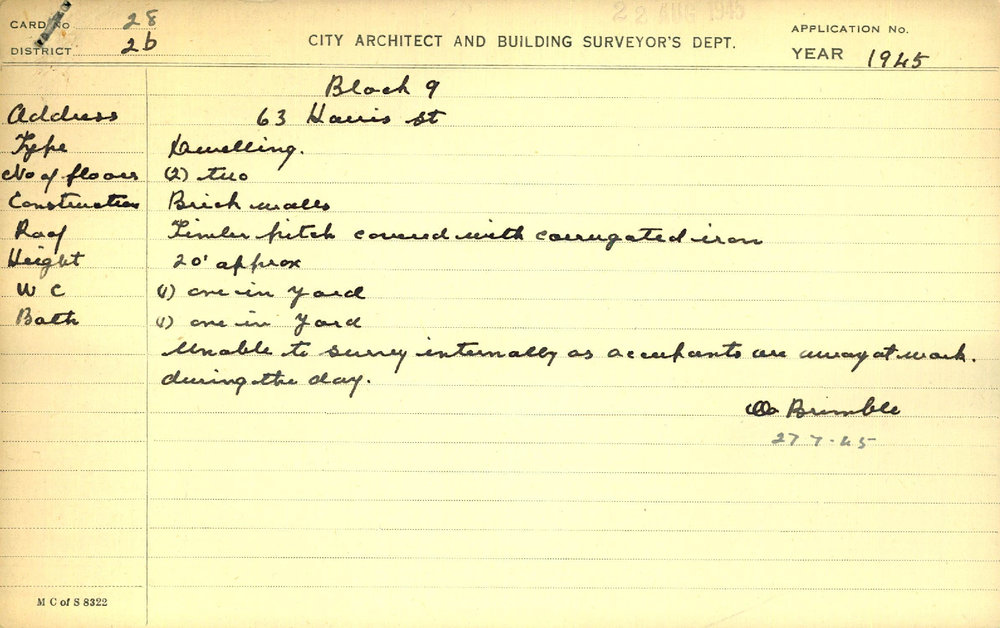 CARD No 28
22 AUG 1945
DISTRICT 2b
CITY ARCHITECT AND BUILDING SURVEYOR'S DEPT.
APPLICATION No.
YEAR 1945
Block 9
Address 63 Harris St
Type Dwelling.
No of floors (2) two
Construction Brick walls
Roof Timber pitch covered with corrugated iron
Height 20' approx
W C (1) one in Yard
Bath (1) one in Yard
Unable to survey internally as occupants are away at work.
during the day.
Brimble
27 7 - 45
M C of S 8322